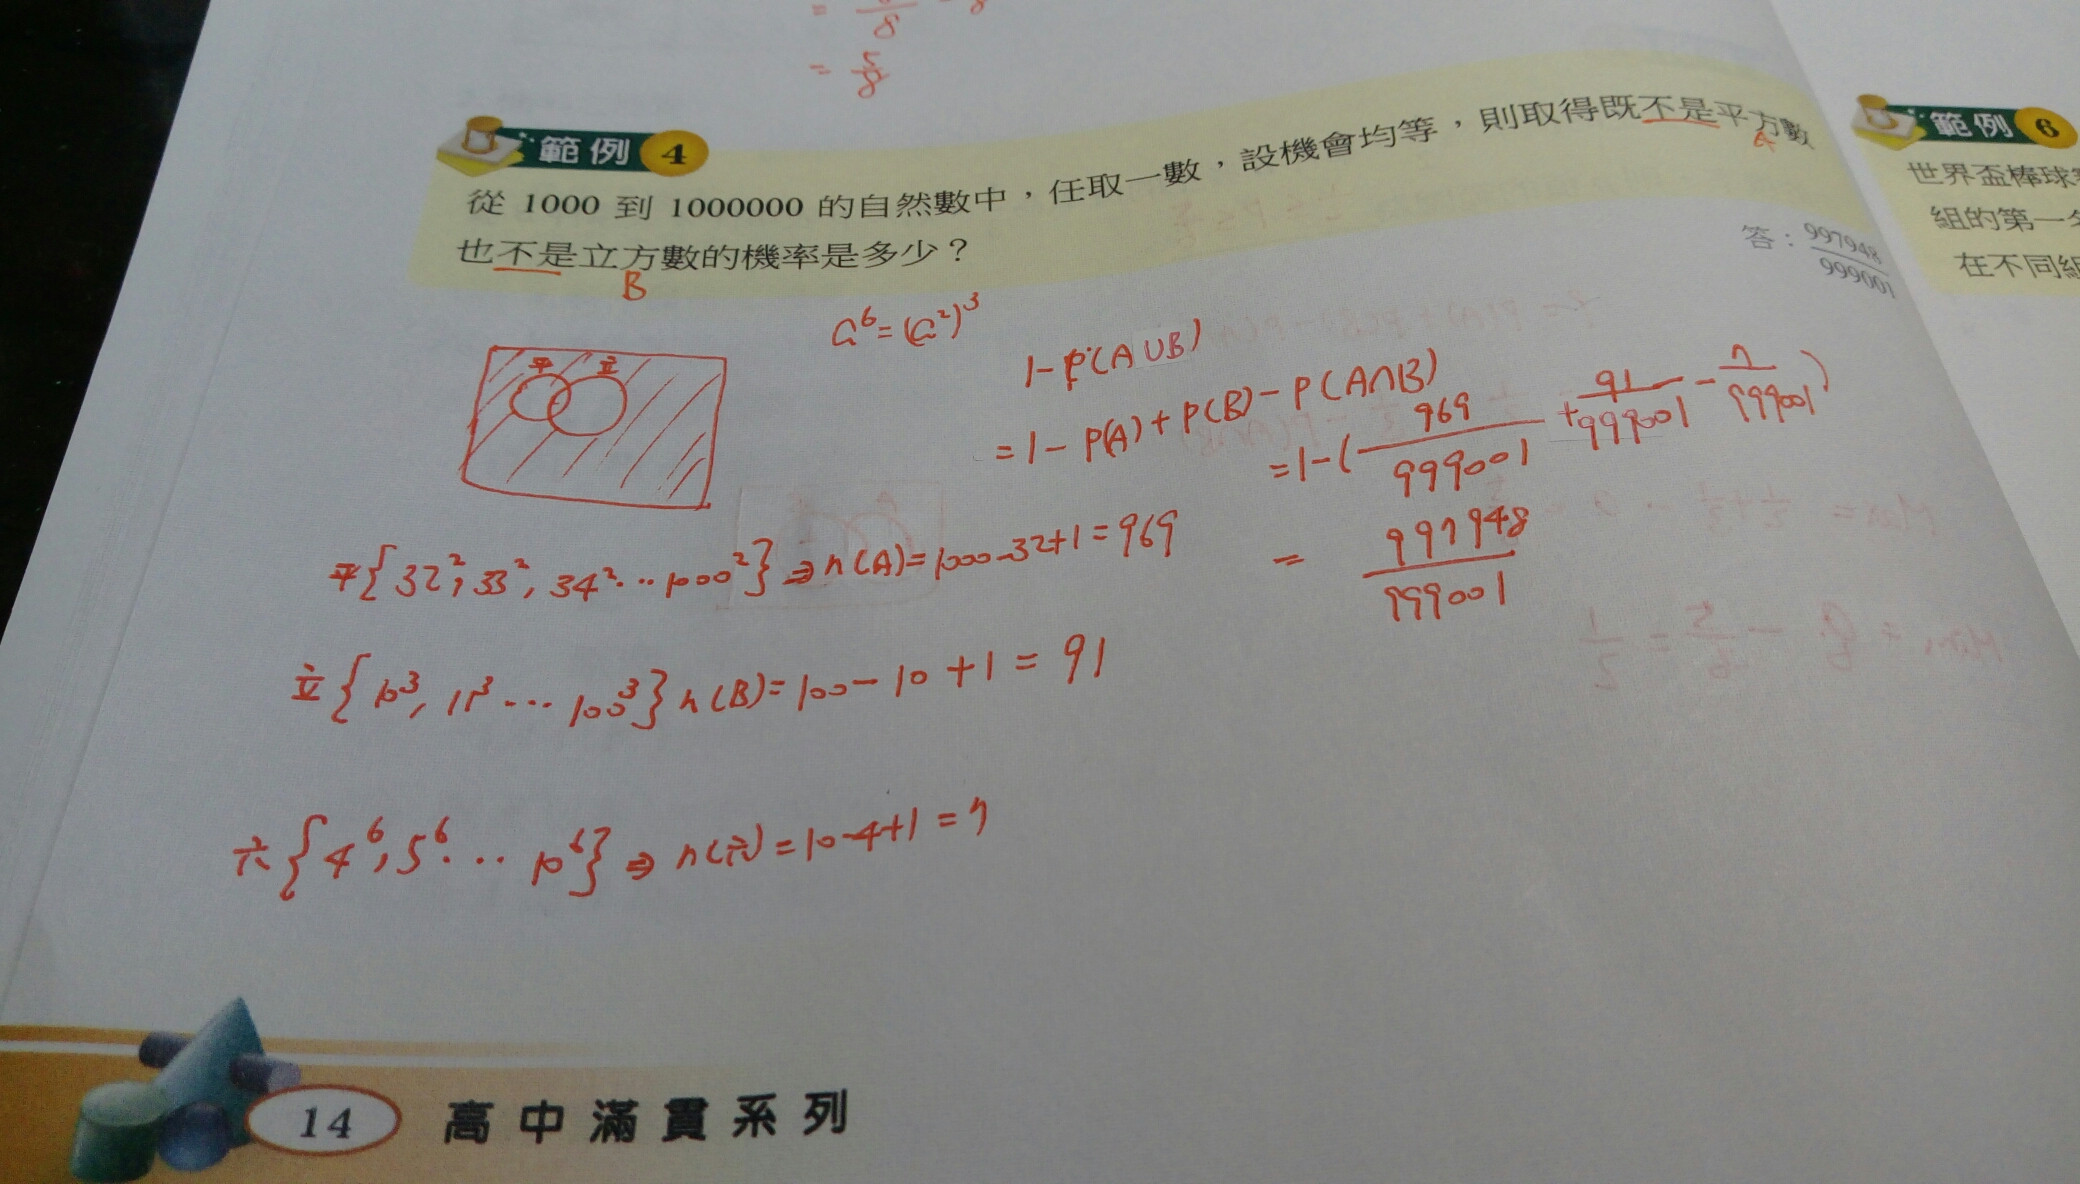 = 5/8
範例 4
從 1000 到 1000000 的自然數中，任取一數，設機會均等，則取得既不是平方數
A
也不是立方數的機率是多少？
B
答：997948/999001
a⁶=(a²)³
平 立
1-P(A∪B)
=1-P(A)+P(B)-P(A∩B)
=1-(969/999001+91/999001-7/999001)
=997948/999001
平{32²,33²,34²...1000²}⇒n(A)=1000-32+1=969
立{10³,11³...100³}n(B)=100-10+1=91
六{4⁶,5⁶...10⁶}⇒n(六)=10-4+1=7
14 高中滿貫系列
範例 6
世界盃棒球
組的第一
在不同組